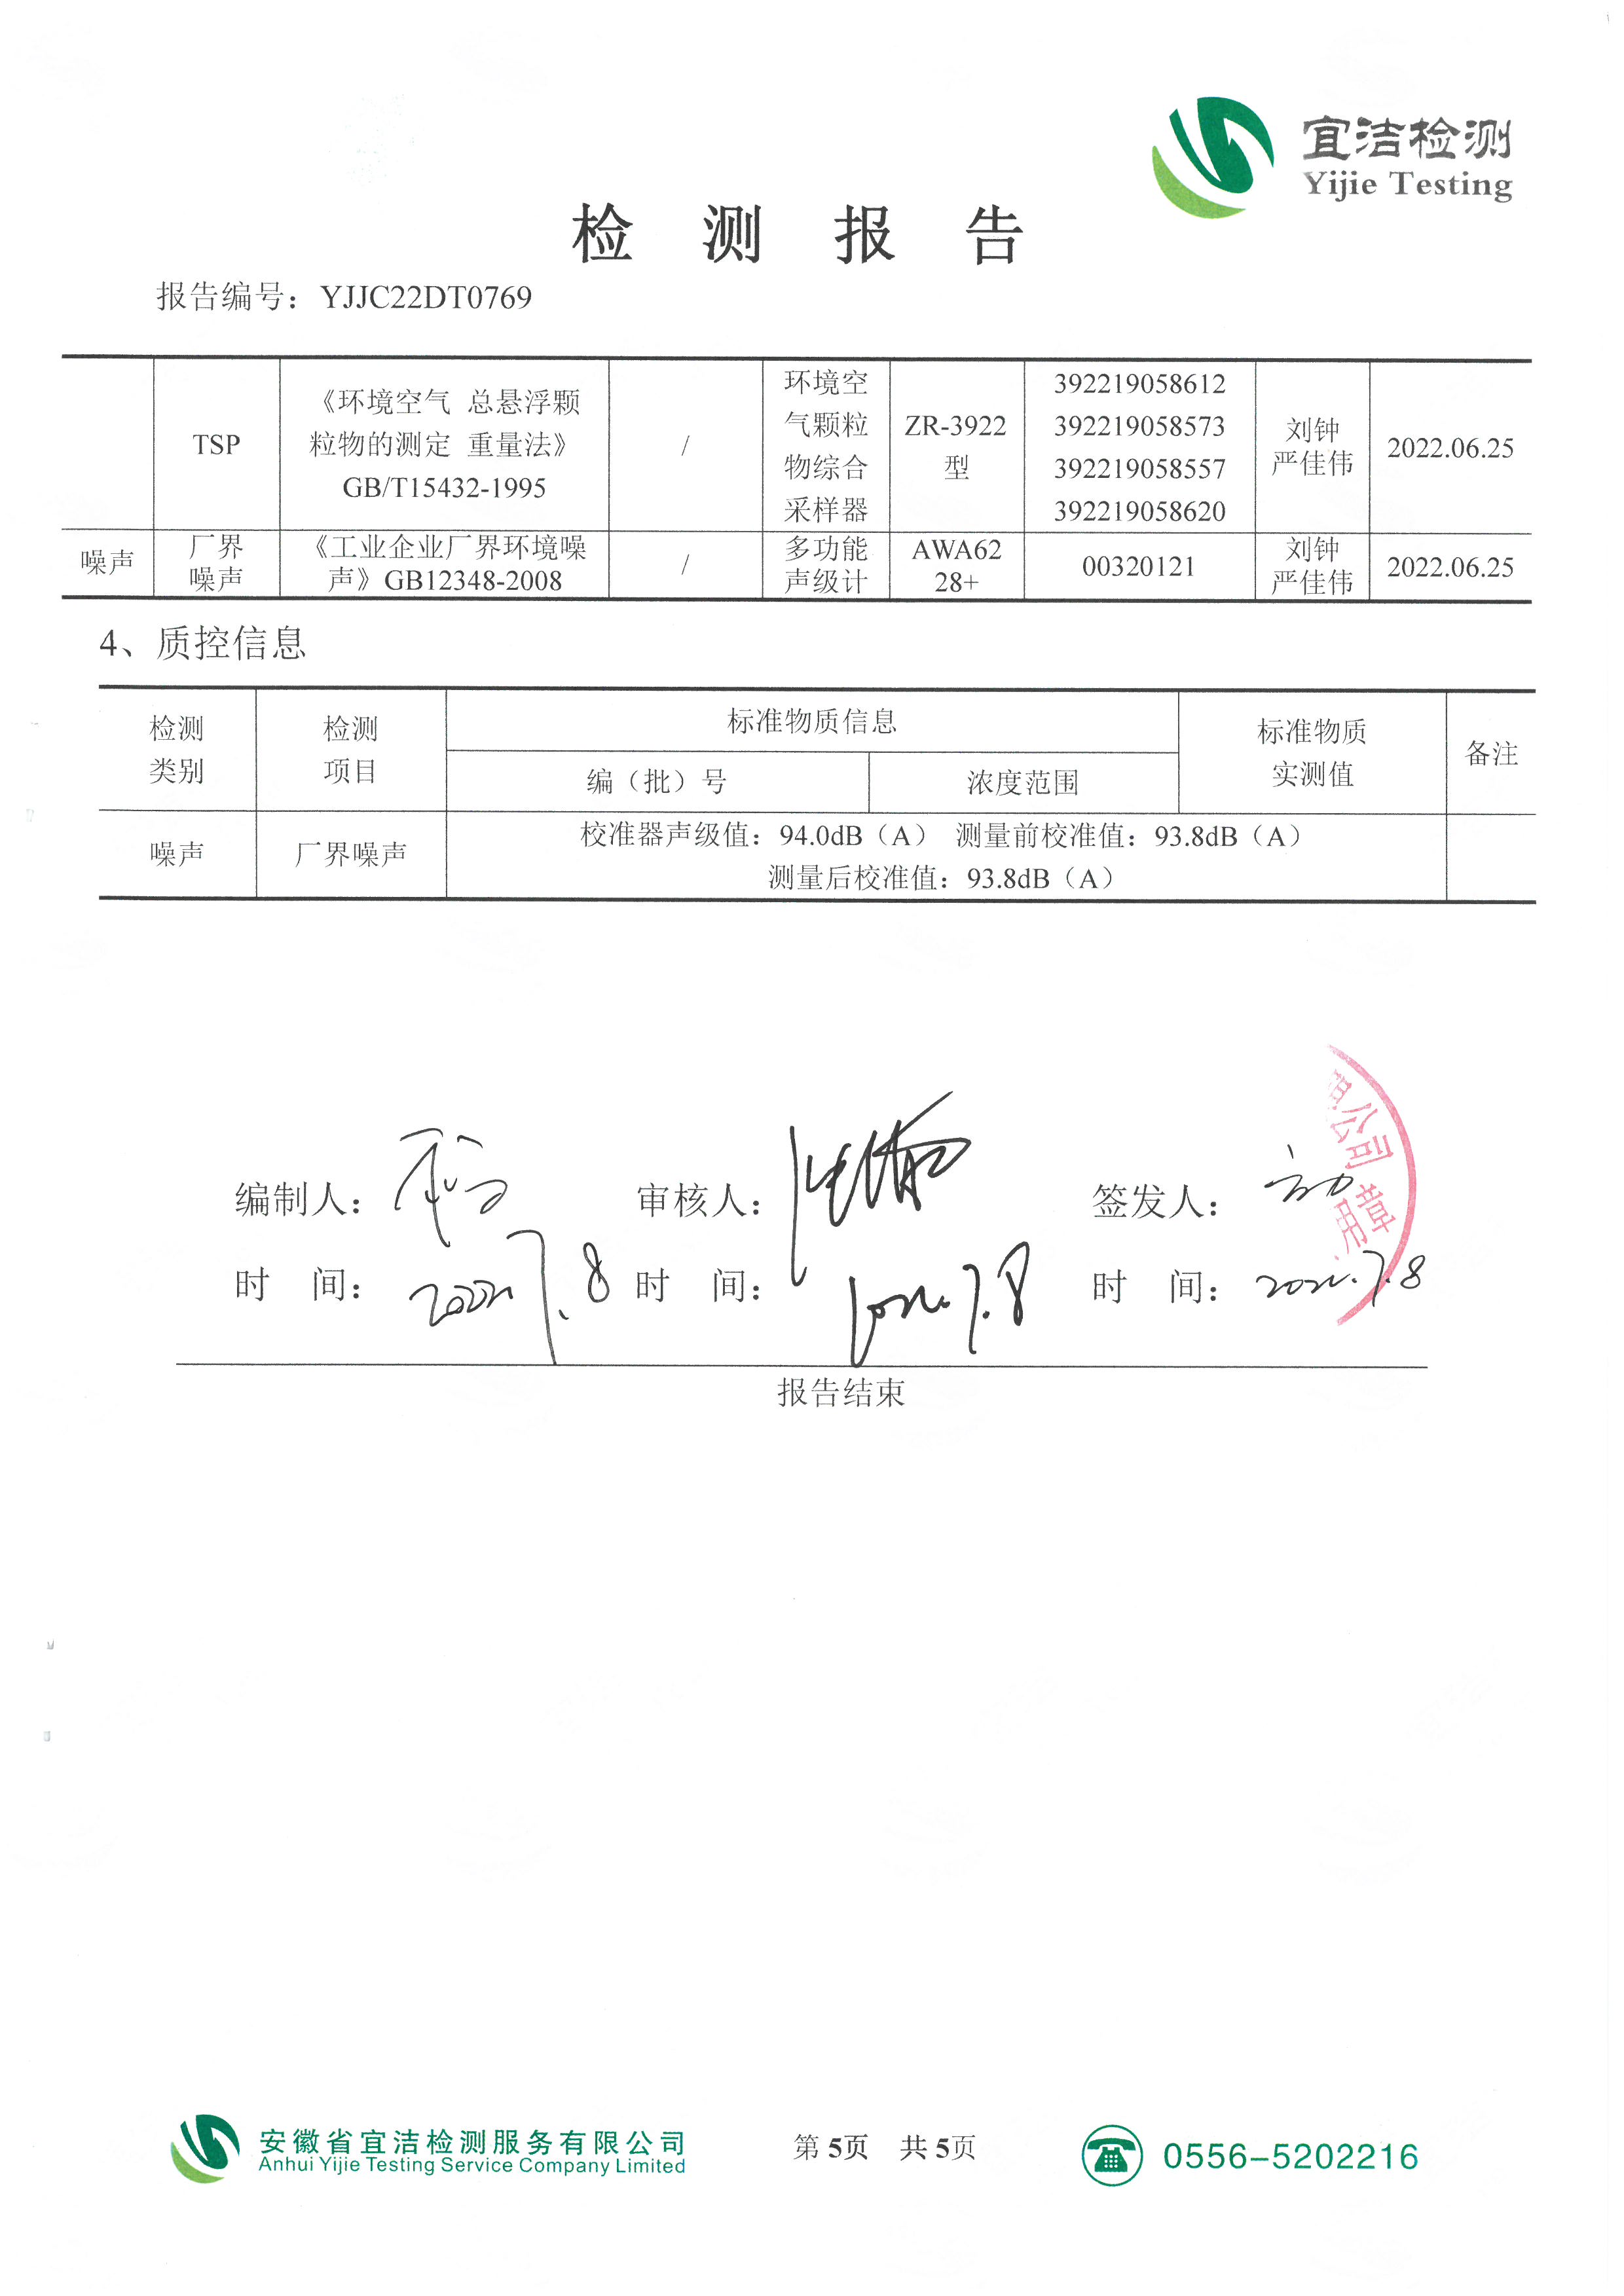 宜洁检测
Yijie Testing
检 测 报 告
报告编号：YJJC22DT0769
TSP
《环境空气 总悬浮颗
粒物的测定 重量法》
GB/T15432-1995
/
环境空
气颗粒
物综合
采样器
ZR-3922
型
392219058612
392219058573
392219058557
392219058620
刘钟
严佳伟
2022.06.25
噪声
厂界
噪声
《工业企业厂界环境噪
声》GB12348-2008
/
多功能
声级计
AWA62
28+
00320121
刘钟
严佳伟
2022.06.25
4、质控信息
检测
类别
检测
项目
标准物质信息
编（批）号
浓度范围
标准物质
实测值
备注
噪声
厂界噪声
校准器声级值：94.0dB（A） 测量前校准值：93.8dB（A）
测量后校准值：93.8dB（A）
公司
用章
编制人：
审核人：
签发人：
时 间：2022.7.8
时 间：2022.7.8
时 间：2022.7.8
报告结束
安徽省宜洁检测服务有限公司
Anhui Yijie Testing Service Company Limited
第 5页 共 5页
0556-5202216